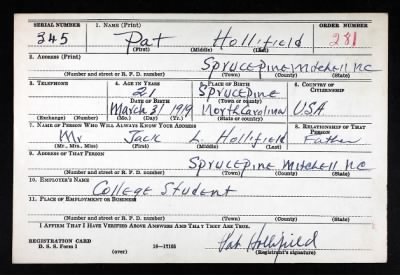 SERIAL NUMBER 1. NAME (Print) ORDER NUMBER
345 Pat Hollifield 281
(First) (Middle) (Last)
2. ADDRESS (Print)
Spruce Pine Mitchell NC
(Number and street or R. F. D. number) (Town) (County) (State)
3. TELEPHONE 4. AGE IN YEARS 5. PLACE OF BIRTH 6. COUNTRY OF CITIZENSHIP
21 Spruce Pine
DATE OF BIRTH (Town or county)
March 31 1919 North Carolina USA
(Exchange) (Number) (Mo.) (Day) (Yr.) (State or country)
7. NAME OF PERSON WHO WILL ALWAYS KNOW YOUR ADDRESS 8. RELATIONSHIP OF THAT PERSON
Mr Jack L Hollifield Father
(Mr., Mrs., Miss) (First) (Middle) (Last)
9. ADDRESS OF THAT PERSON
Spruce Pine Mitchell NC
(Number and street or R. F. D. number) (Town) (County) (State)
10. EMPLOYER'S NAME
College Student
11. PLACE OF EMPLOYMENT OR BUSINESS
(Number and street or R. F. D. number) (Town) (County) (State)
I AFFIRM THAT I HAVE VERIFIED ABOVE ANSWERS AND THAT THEY ARE TRUE.
REGISTRATION CARD
D. S. S. Form 1 (over) 16—17105 Pat Hollifield
(Registrant's signature)